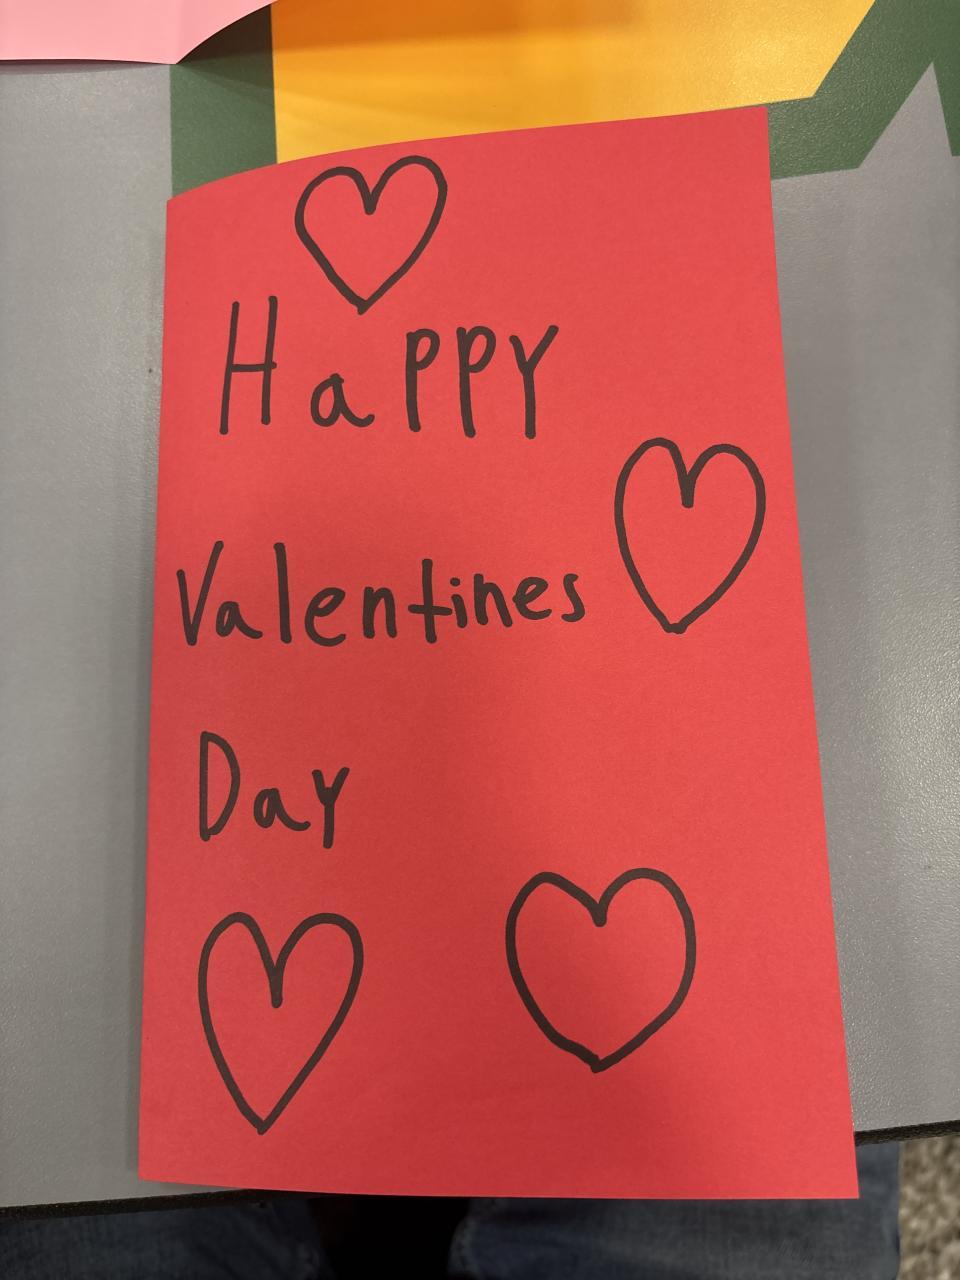 Happy
Valentines
Day